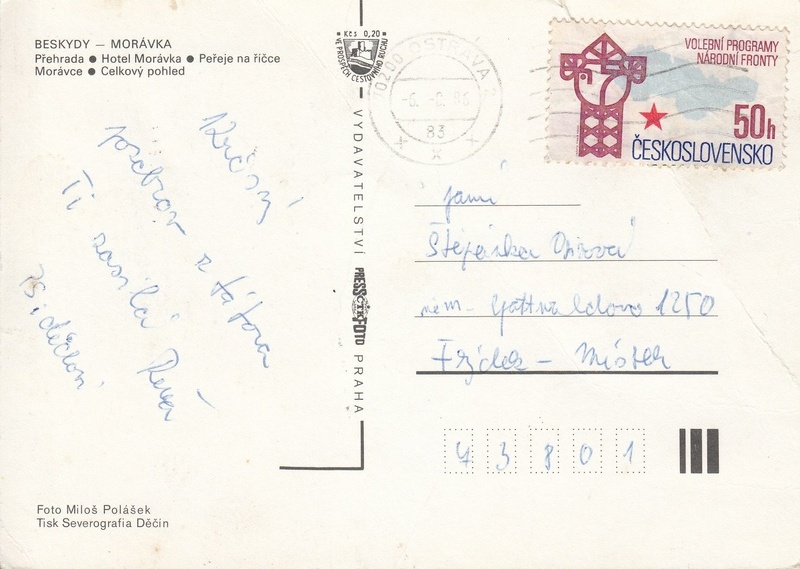 BESKYDY — MORÁVKA
Přehrada ● Hotel Morávka ● Peřeje na říčce
Morávce ● Celkový pohled
Krásný
pozdrav z tábora
Ti zasílá
Foto Miloš Polášek
Tisk Severografia Děčín
Kčs 0,20
VE PROSPĚCH CESTOVNÍHO RUCHU
VYDAVATELSTVÍ PRESSFOTO PRAHA
ČTK
70200 OSTRAVA 2
-6.-8.86
83
VOLEBNÍ PROGRAMY
NÁRODNÍ FRONTY
50h
ČESKOSLOVENSKO
paní
Štěpánka
nám. Gottwaldovo 1250
Frýdek - Místek
43801